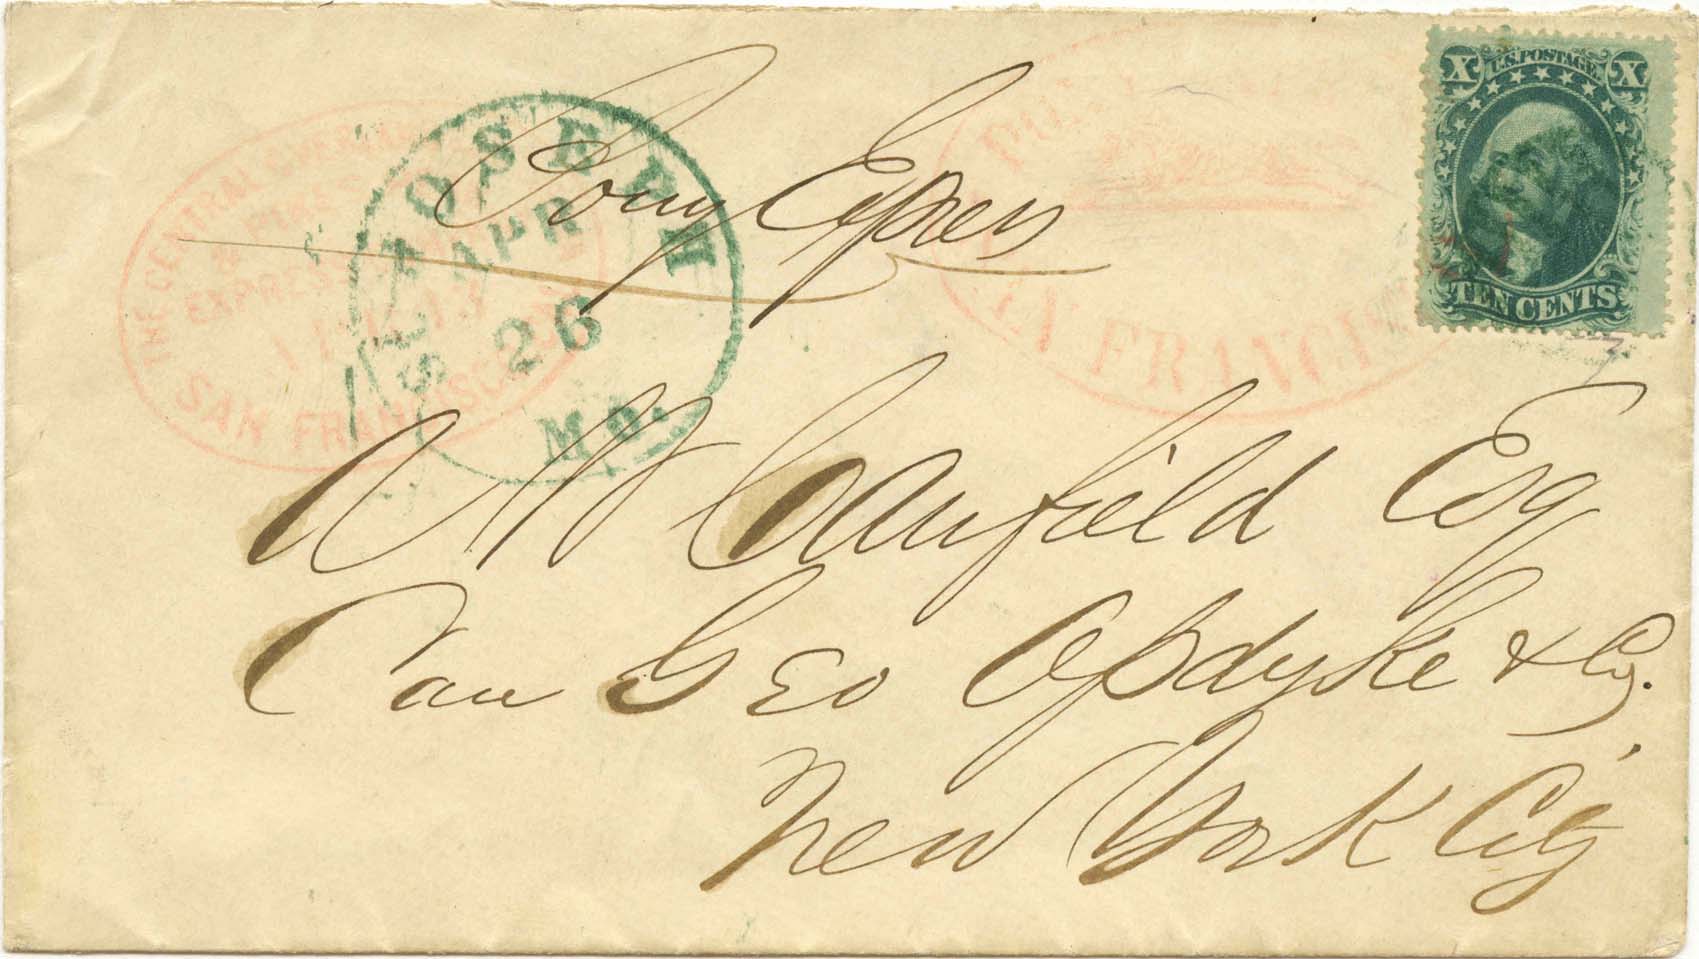 Pony Express
ST. JOSEPH
APR
26
Mo.
THE CENTRAL OVERLAND
& PIKES
EXPRESS
SAN FRANCISCO
PONY
SAN FRANCISCO
X U.S. POSTAGE. X
TEN CENTS
W Canfield Esq
Care Geo Opdyke & Co.
New York City